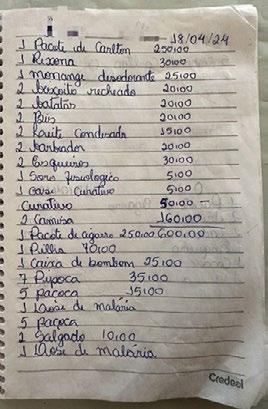 18/04/24
1 Pacote de Carlton 250,00
1 Rexona 30,00
1 Monange desodorante 25,00
2 biscoito recheado 20,00
2 batatas 20,00
2 Bis 20,00
2 Leite Condesado 15,00
2 barbeador 20,00
2 Esqueiros 30,00
1 Soro fisiologico 5,00
1 Curativo 5,00
Curativo 50,00
2 Camisa 160,00
1 Pacote de cigarro 250,00 600,00
1 Pilha 70,00
1 Caixa de bombom 25,00
7 Pipoca 35,00
5 paçoca 15,00
1 Dose de malária
5 paçoca
2 Salgado 10,00
1 Dose de malária
Credeal